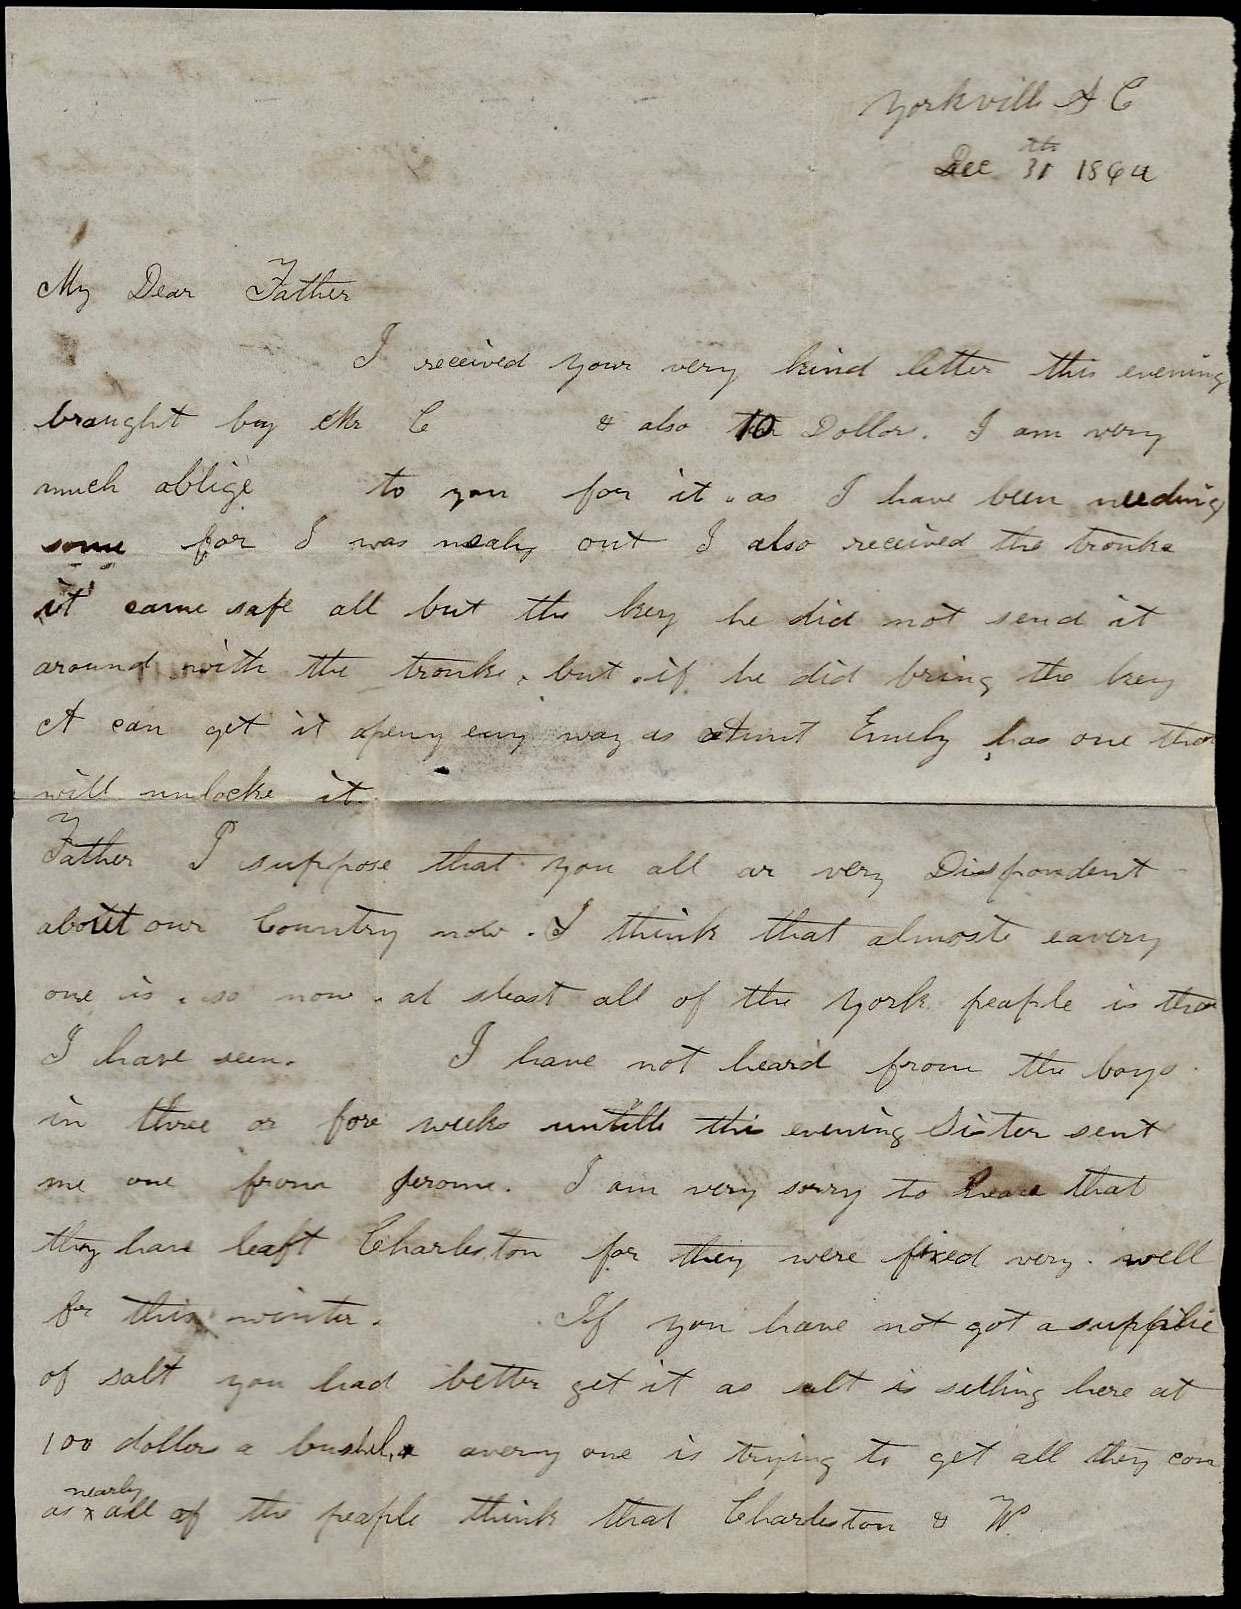 Yorkvill S C
Dec 31th 1864
My Dear Father
I received your very kind letter this evening
braught by Mr C & also 10 Dollar. I am very
much oblige to you for it. as I have been needing
some for I was nealy out I also received the tronke
it came safe all but the key he did not send it
around with the tronke, but if he did bring the key
I can get it apeny eny way as Aunt Emely has one that
will unlocke it.
Father I suppose that you all ar very Dispondent
about our Country now. I think that almoste eavery
one is so now. at sleast all of the York peaple is that
I have seen. I have not heard from the boys
in three or fore weeks untille this evening Sister sent
me one from Jerome. I am very sorry to heare that
they have leaft Charleston for they were fixed very well
for this winter. If you have not got a supplie
of salt you had better get it as salt is selling here at
100 dollers a bushel, & avery one is trying to get all they can
as nearly all of the peaple think that Charleston & W